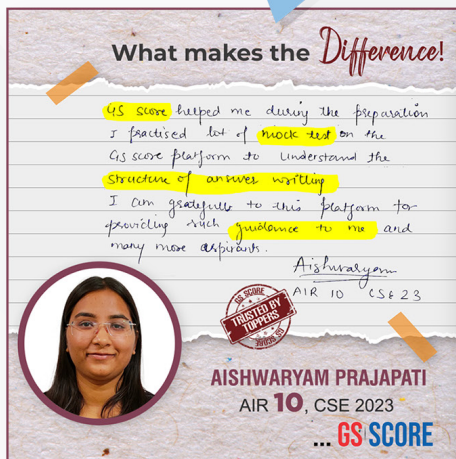 What makes the Difference!
GS score helped me during the preparation
I practised lot of mock test on the
GS score platform to understand the
structure of answer writting
I am gratefull to this platform for
providing such guidance to me and
many more aspirants.
Aishwaryam
AIR 10 CSE 23
GS SCORE
TRUSTED BY
TOPPERS
GS SCORE
AISHWARYAM PRAJAPATI
AIR 10, CSE 2023
... GS SCORE